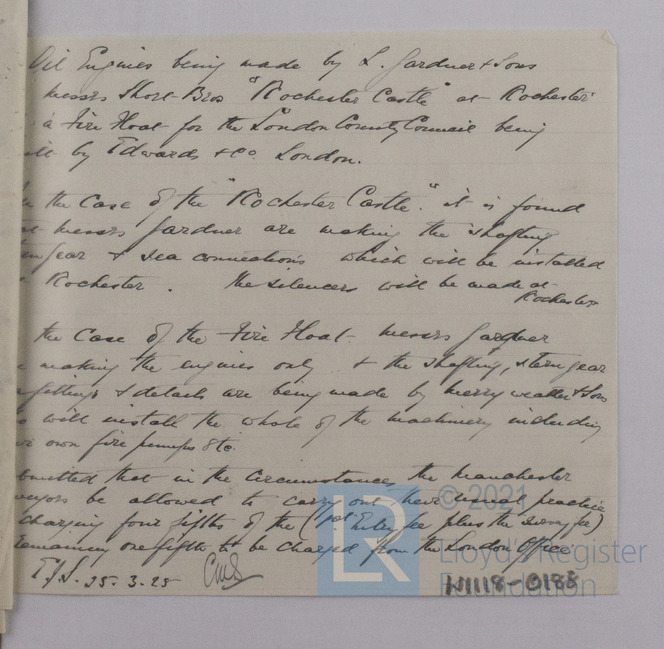 Oil Engines being made by L. Gardner & Sons
Messrs Short Bros "Rochester Castle" at Rochester
a Fire Float for the London County Council being
by Edwards & Co. London.
the case of the "Rochester Castle" it is found
Messrs Gardner are making the shafting
gear & sea connections which will be installed
Rochester. The silencers will be made at
Rochester
the case of the Fire Float Messrs Gardner
making the engines only & the shafting, stern gear
fittings & details are being made by Merryweather & Sons
will install the whole of the machinery including
own fire pumps &tc.
that in the circumstances the Manchester
be allowed to carry out their usual practice
charging four fifths of the (1st Entry fee plus the survey fee)
remaining one fifth to be charged from the London Office
25.3.25
© 2021
Lloyd's Register
Foundation
LR
W1118-0188